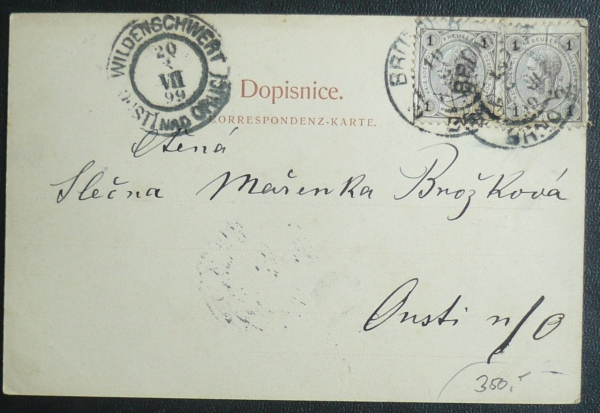 WILDENSCHWERT
20
3
VII
99
ÚSTÍ NAD ORLICÍ
1 1 1 1
BRNO
Dopisnice.
CORRESPONDENZ-KARTE.
Ctěná
Slečna Mařenka Brožková
Ousti n/O
350,-